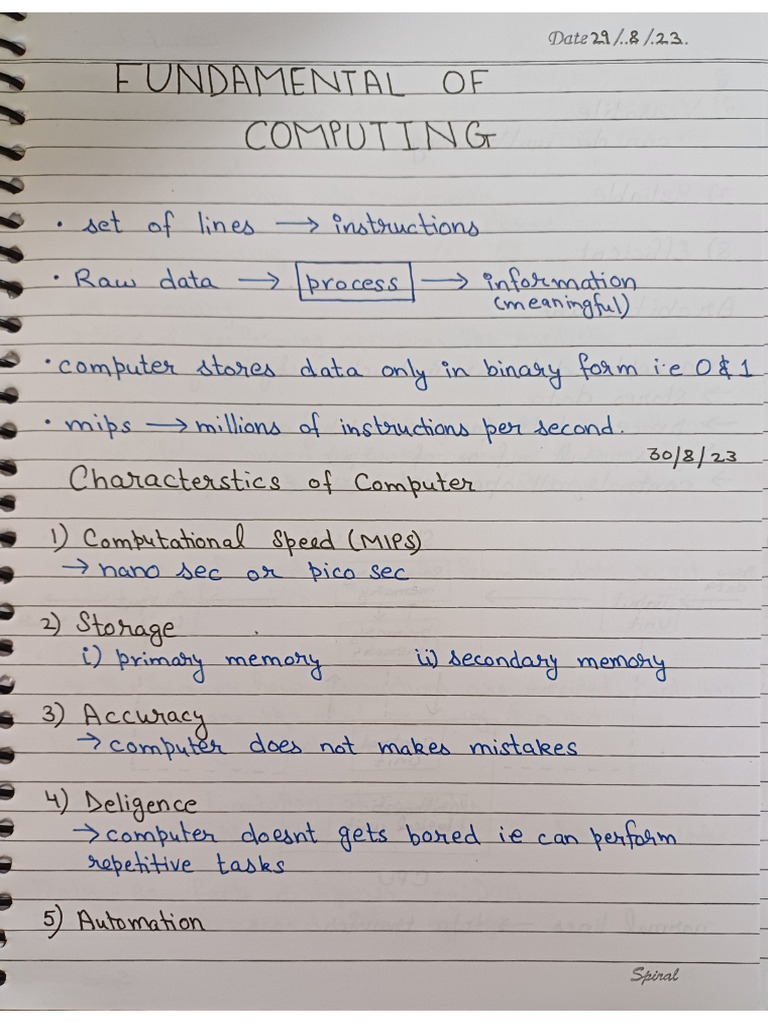 Date 29/.8/.23.
FUNDAMENTAL OF
COMPUTING
• set of lines → instructions
• Raw data → process → information
(meaningful)
• computer stores data only in binary form i.e 0 & 1
• mips → millions of instructions per second.
30/8/23
Characterstics of Computer
1) Computational Speed (MIPS)
→ nano sec or pico sec
2) Storage
i) primary memory ii) secondary memory
3) Accuracy
→ computer does not makes mistakes
4) Deligence
→ computer doesnt gets bored ie can perform
repetitive tasks
5) Automation
Spiral